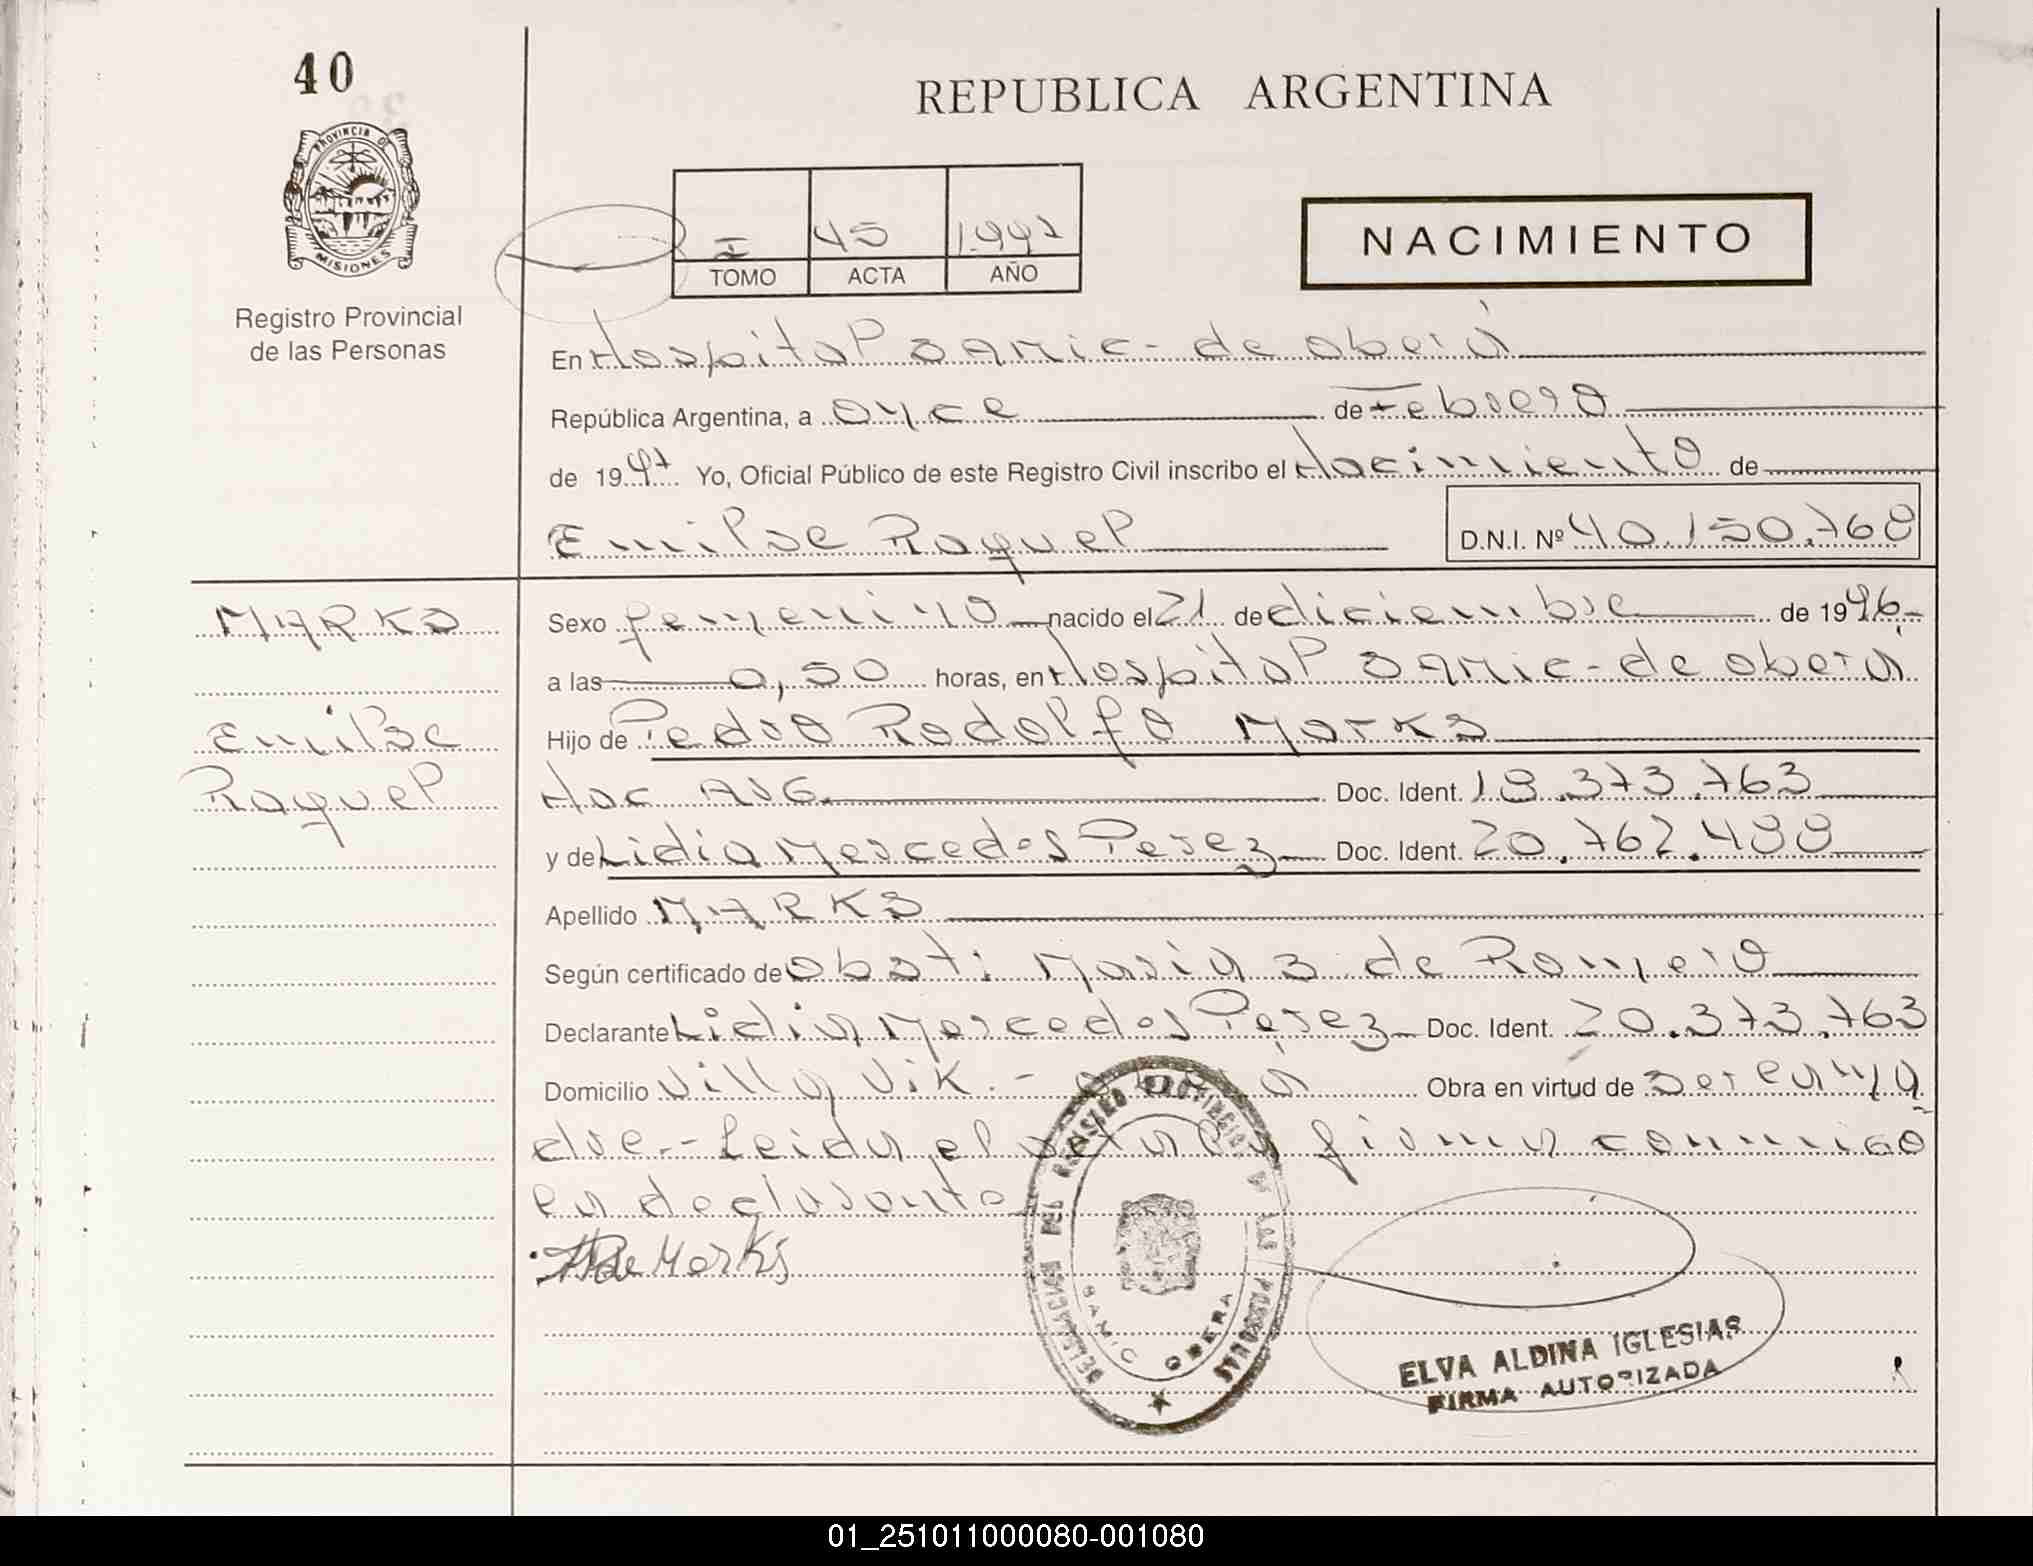 40
REPUBLICA ARGENTINA
PROVINCIA DE
MISIONES
Registro Provincial
de las Personas
I 45 1997
TOMO ACTA AÑO
NACIMIENTO
En Hospital SAMIC - de Oberá
República Argentina, a once de Febrero
de 1997 Yo, Oficial Público de este Registro Civil inscribo el Nacimiento de
Emilse Raquel D.N.I. Nº 40.150.768
MARKS
Sexo femenino nacido el 21 de diciembre de 1996.-
a las 0,50 horas, en Hospital SAMIC - de Oberá
Emilse
Hijo de Pedro Rodolfo Marks
Raquel
Nac ARG. Doc. Ident. 18.373.763
y de Lidia Mercedes Perez Doc. Ident. 20.762.488
Apellido MARKS
Según certificado de Obst: Maria S de Romero
Declarante Lidia Mercedes Perez Doc. Ident. 20.373.763
Domicilio Villa Vik. - Oberá Obra en virtud de ser la
dre.- Leida el acta la firma conmigo
la declarante
de Marks
DELEGACION DEL REGISTRO PROVINCIAL DE LAS PERSONAS
SAMIC OBERA
ELVA ALDINA IGLESIAS
FIRMA AUTORIZADA
01_251011000080-001080